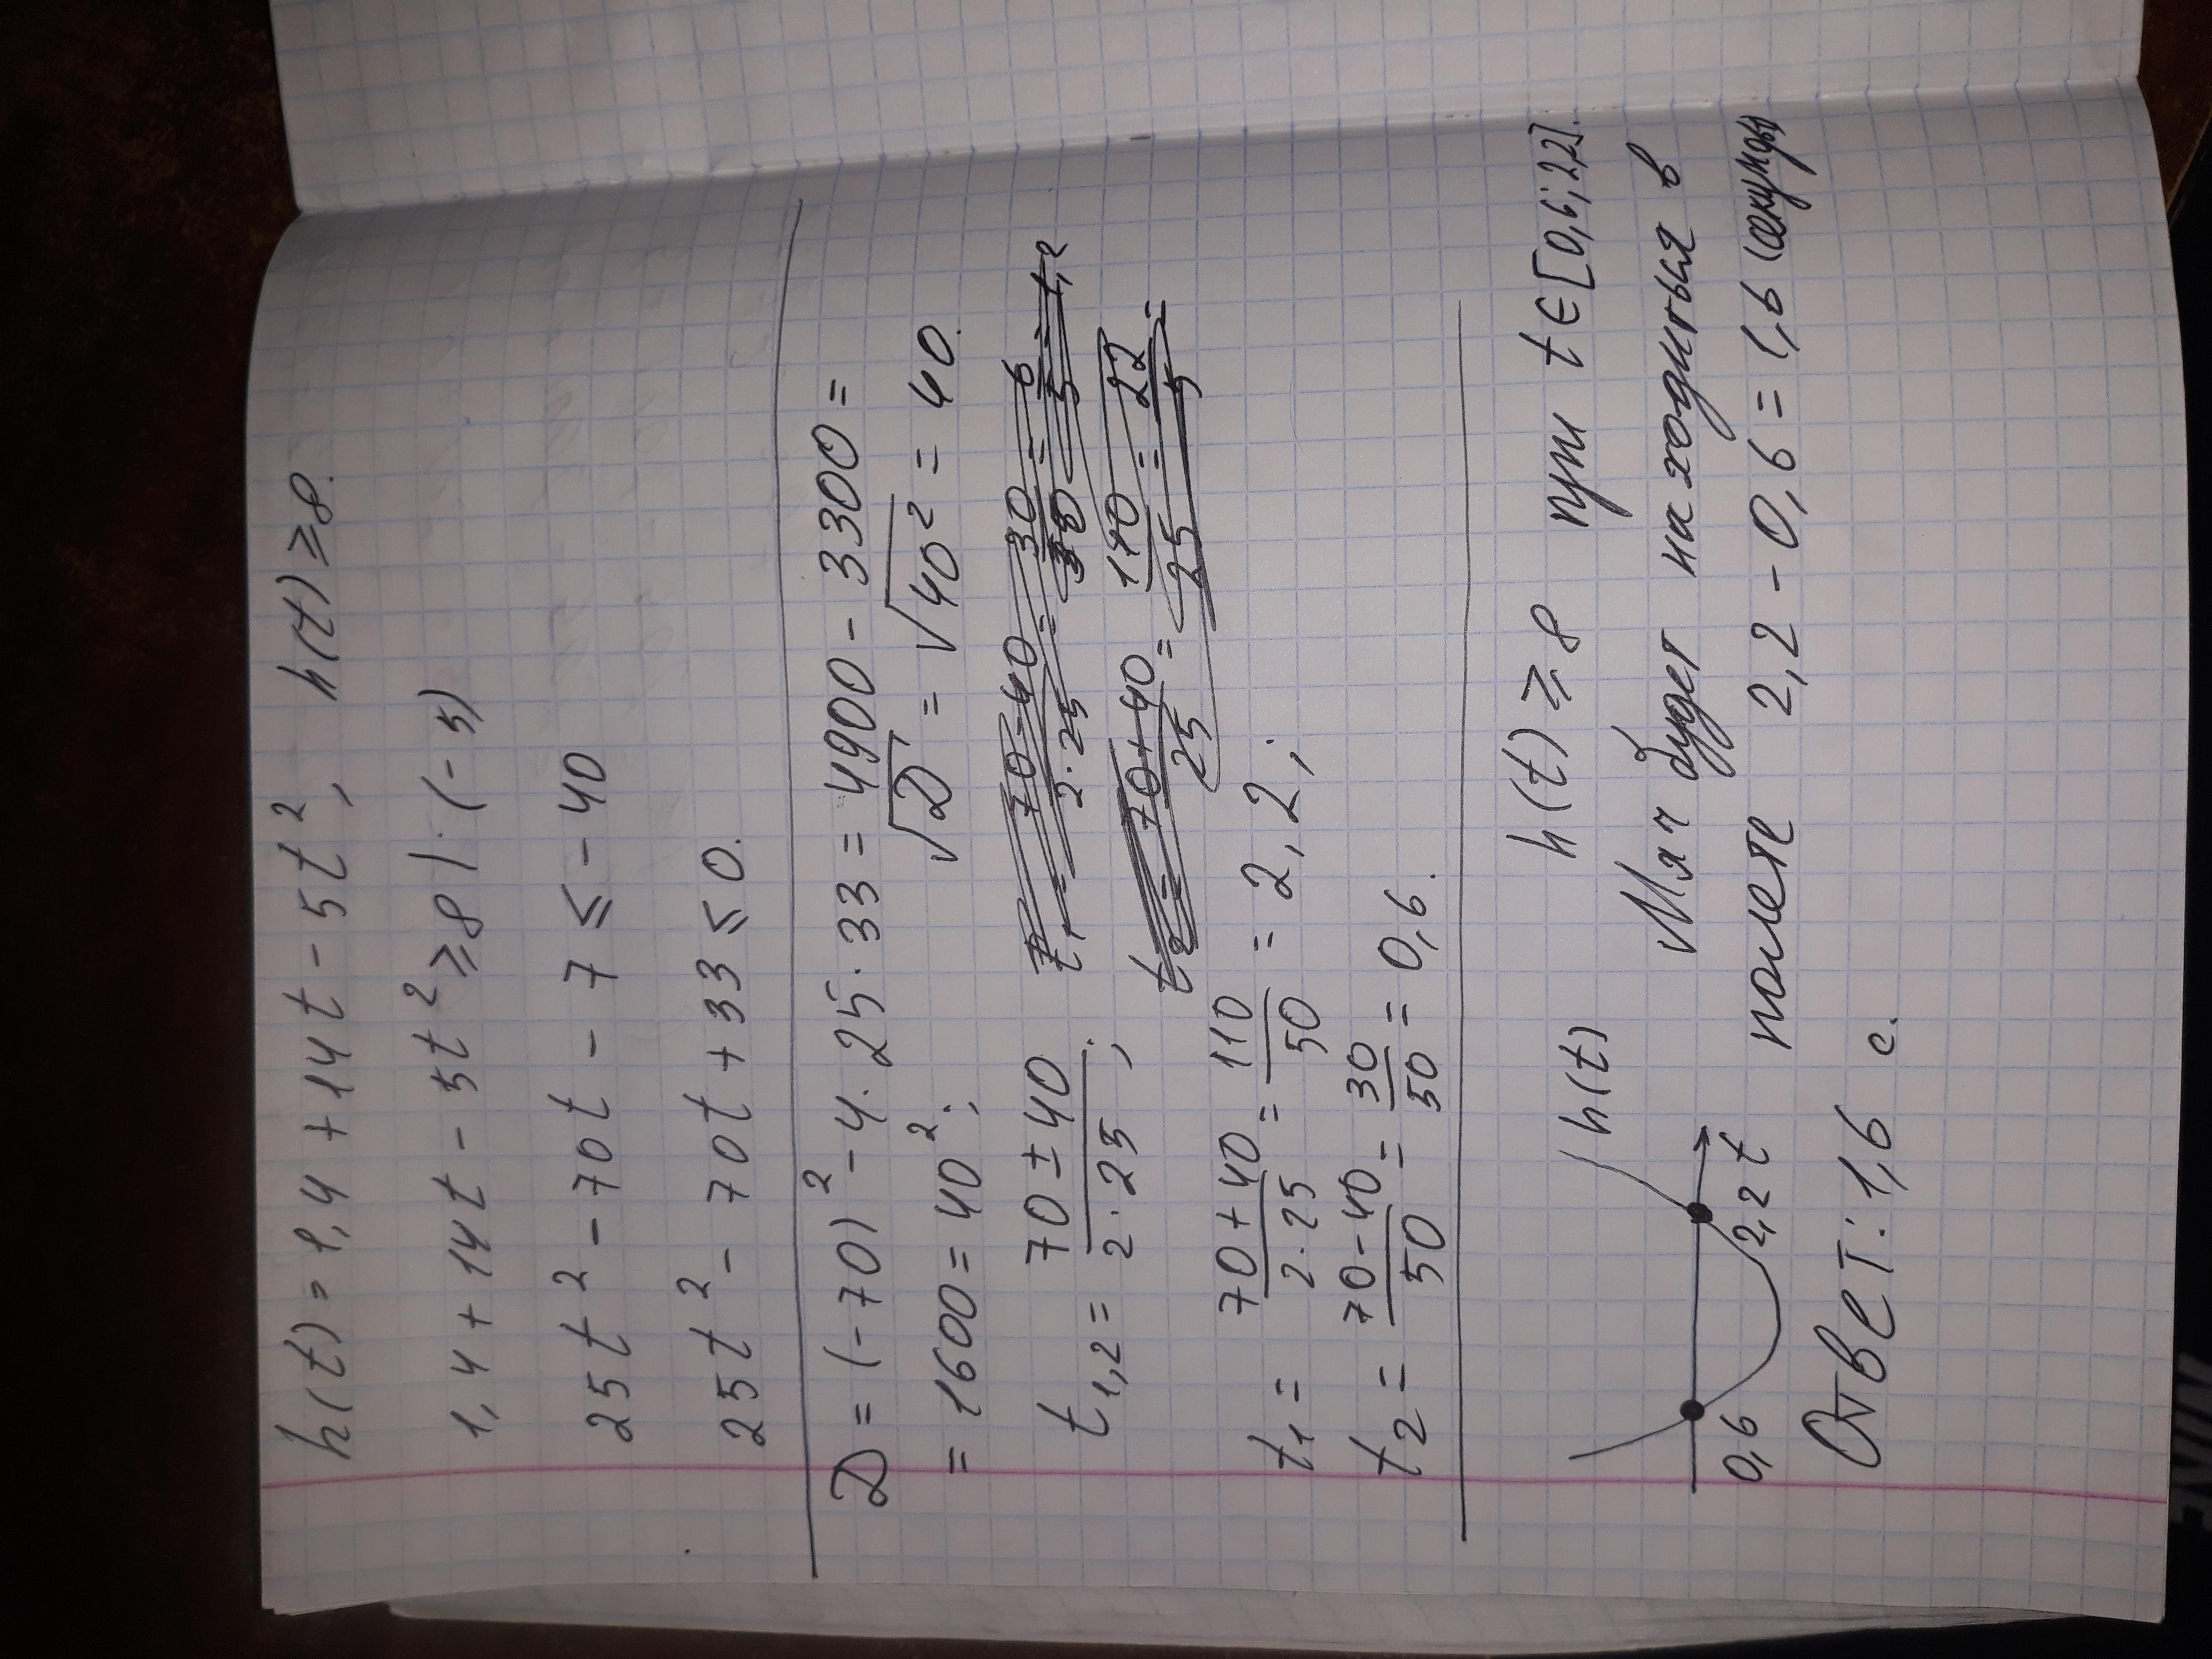 h(t) = 1,4 + 14t - 5t², h(t) ≥ 8.
1,4 + 14t - 5t² ≥ 8 | · (-5)
25t² - 70t - 7 ≤ -40
25t² - 70t + 33 ≤ 0.
D = (-70)² - 4 · 25 · 33 = 4900 - 3300 =
= 1600 = 40²; √D = √40² = 40.
t₁,₂ = (70 ± 40)/(2 · 25);
t₁ = (70 - 40)/(2 · 25) =
t₂ = (70 + 40)/25 = 110/25 = 22/5
t₁ = (70 + 40)/(2 · 25) = 110/50 = 2,2;
t₂ = (70 - 40)/50 = 30/50 = 0,6.
h(t) ≥ 8 при t ∈ [0,6; 2,2].
h(t)
Мяч будет находиться в
полете 2,2 - 0,6 = 1,6 (секунды
0,6 2,2 t
Ответ: 1,6 с.